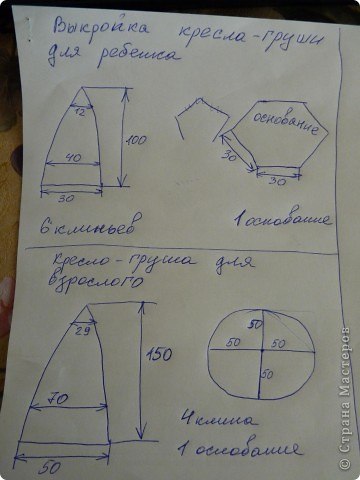 Выкройка кресла-груши
для ребенка
12
100
40
30
основание
30
30
6 клиньев
1 основание
кресло-груша для
взрослого
29
150
70
50
50
50
50
50
4 клина
1 основание
© Страна Мастеров